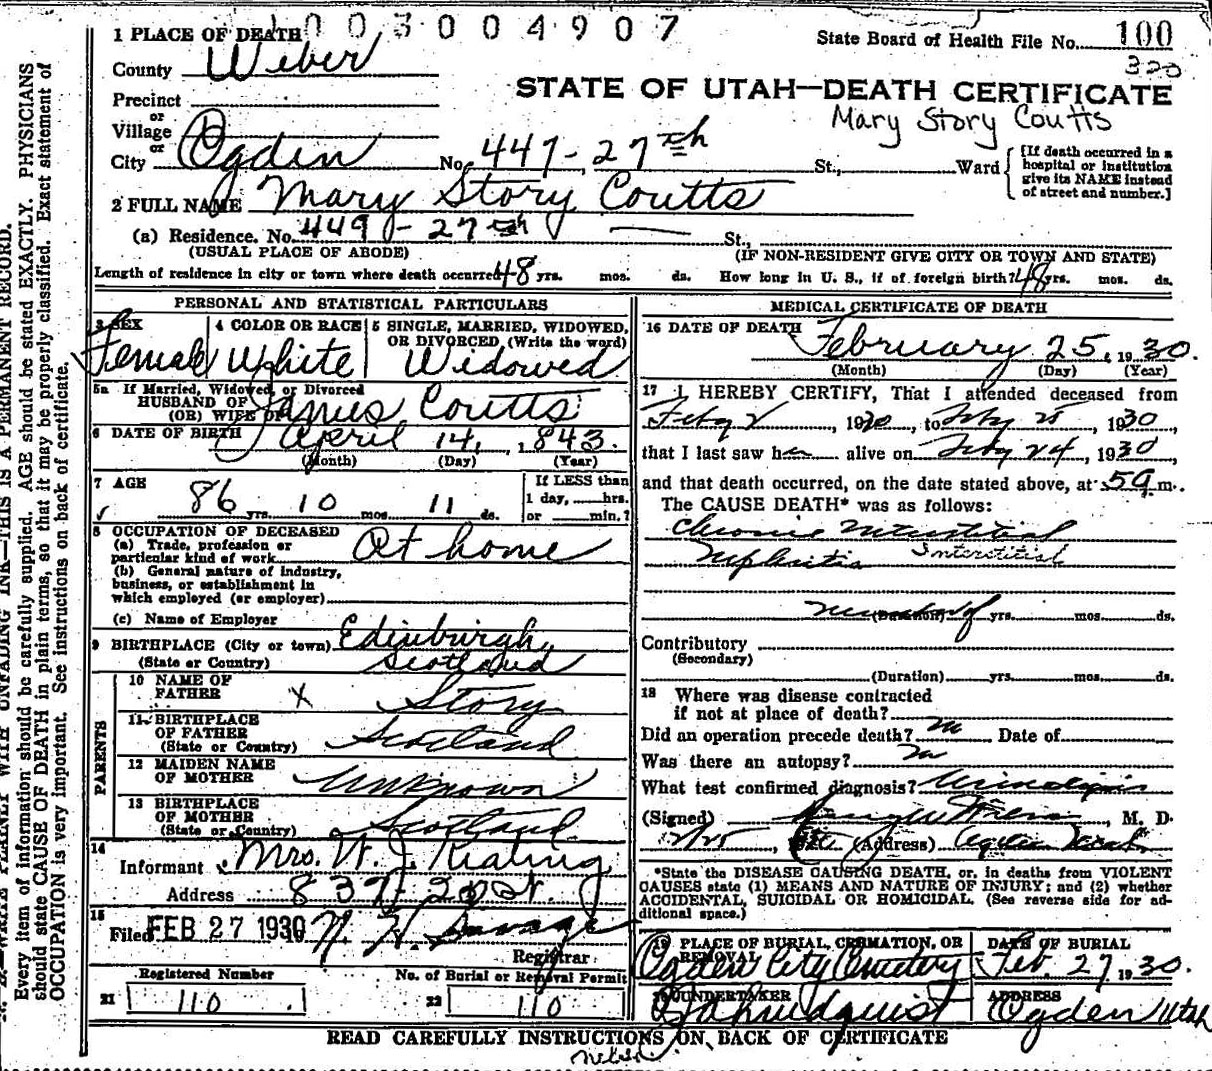 1003004907
1 PLACE OF DEATH
State Board of Health File No. 100
320
County Weber
STATE OF UTAH—DEATH CERTIFICATE
Precinct
Mary Story Coutts
or
Village
or
City Ogden No. 447-27th St., Ward
[If death occurred in a hospital or institution give its NAME instead of street and number.]
2 FULL NAME Mary Story Coutts
(a) Residence. No. 449-27th St.,
(USUAL PLACE OF ABODE) (IF NON-RESIDENT GIVE CITY OR TOWN AND STATE)
Length of residence in city or town where death occurred 48 yrs. mos. ds. How long in U. S., if of foreign birth? 48 yrs. mos. ds.
PERSONAL AND STATISTICAL PARTICULARS
3 SEX 4 COLOR OR RACE 5 SINGLE, MARRIED, WIDOWED, OR DIVORCED (Write the word)
Female White Widowed
5a If Married, Widowed, or Divorced
HUSBAND OF
(OR) WIFE OF James Coutts
6 DATE OF BIRTH April 14, 1843.
(Month) (Day) (Year)
7 AGE 86 yrs. 10 mos. 11 ds.
If LESS than
1 day, hrs.
or min.?
8 OCCUPATION OF DECEASED
(a) Trade, profession or
particular kind of work At home
(b) General nature of industry,
business, or establishment in
which employed (or employer)
(c) Name of Employer
9 BIRTHPLACE (City or town) Edinburgh,
(State or Country) Scotland
PARENTS
10 NAME OF
FATHER X Story
11 BIRTHPLACE
OF FATHER
(State or Country) Scotland
12 MAIDEN NAME
OF MOTHER Unknown
13 BIRTHPLACE
OF MOTHER
(State or Country) Scotland
14
Informant Mrs. W. J. Keating
Address 837-20 St.
15
Filed FEB 27 1930
Registrar
Registered Number No. of Burial or Removal Permit
21 110 22 110
MEDICAL CERTIFICATE OF DEATH
16 DATE OF DEATH February 25, 1930.
(Month) (Day) (Year)
17 I HEREBY CERTIFY, That I attended deceased from
, 1930, to , 1930
that I last saw her alive on Feby 24, 1930
and that death occurred, on the date stated above, at 5 a m.
The CAUSE DEATH* was as follows:
Chronic Interstitial
Nephritis Interstitial
(Duration) yrs. mos. ds.
Contributory
(Secondary)
(Duration) yrs. mos. ds.
18 Where was disease contracted
if not at place of death?
Did an operation precede death? no Date of
Was there an autopsy? no
What test confirmed diagnosis?
(Signed) , M. D.
2/25, (Address) Ogden Utah
*State the DISEASE CAUSING DEATH, or, in deaths from VIOLENT
CAUSES state (1) MEANS AND NATURE OF INJURY; and (2) whether
ACCIDENTAL, SUICIDAL OR HOMICIDAL. (See reverse side for ad-
ditional space.)
19 PLACE OF BURIAL, CREMATION, OR REMOVAL DATE OF BURIAL
Ogden City Cemetery Feb. 27, 1930.
20 UNDERTAKER ADDRESS
Ogden Utah
READ CAREFULLY INSTRUCTIONS ON BACK OF CERTIFICATE
N. B.—WRITE PLAINLY WITH UNFADING INK—THIS IS A PERMANENT RECORD.
Every item of information should be carefully supplied. AGE should be stated EXACTLY. PHYSICIANS
should state CAUSE OF DEATH in plain terms, so that it may be properly classified. Exact statement of
OCCUPATION is very important. See instructions on back of certificate.